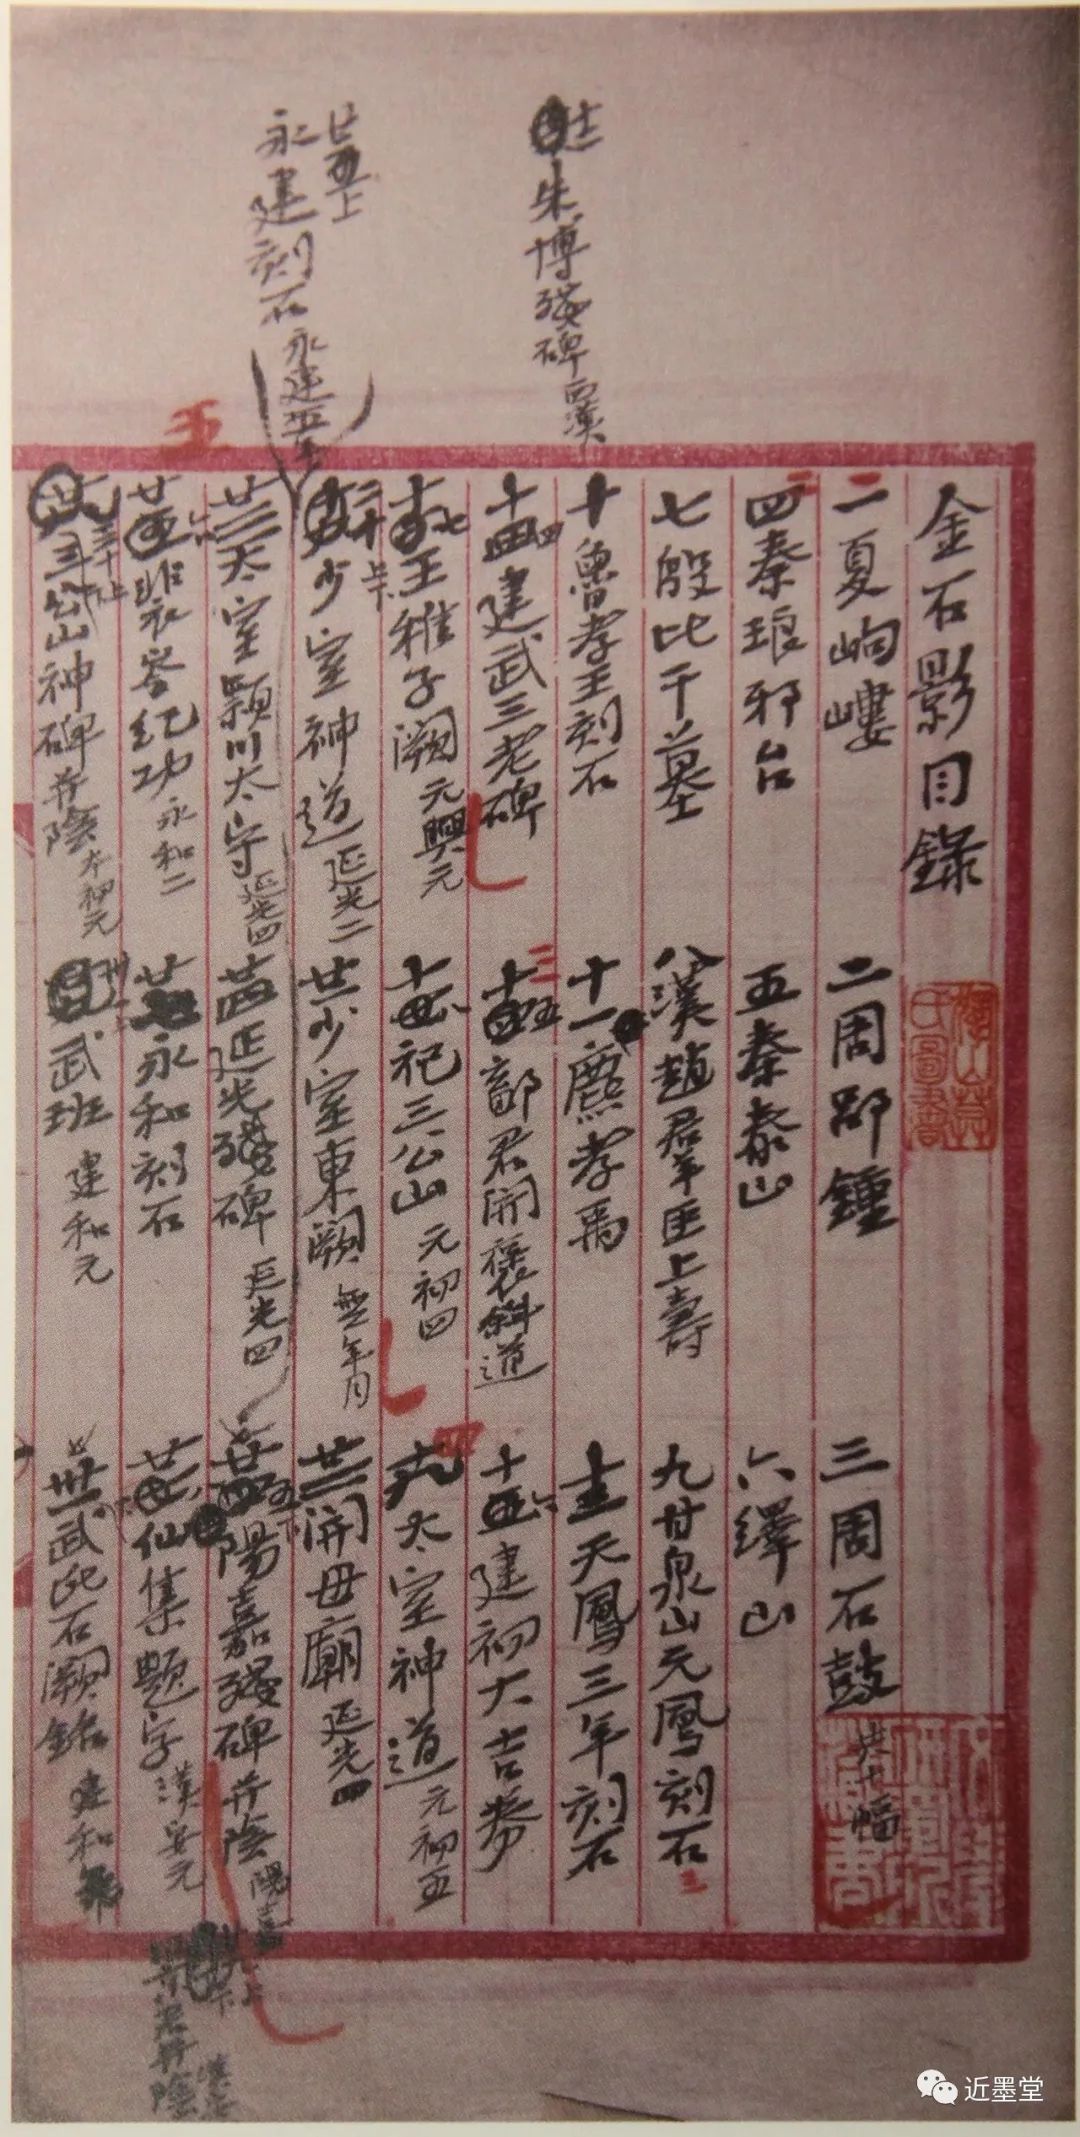 金石影目錄
一夏岣嶁 二周郘鍾 三周石鼓 共十幅
四秦琅邪台 五秦泰山 六繹山
七殷比干墓 八漢趙羣臣上壽 九甘泉山元鳳刻石
十魯孝王刻石 十一麃孝禹 十三天鳳三年刻石
十二朱博殘碑 西漢
十四建武三老碑 十五鄐君開褒斜道 十六建初大吉券
十七王稚子闕 元興元 十八祀三公山 元初四 十九太室神道 元初五
二十少室神道 延光二 廿一少室東闕 無年月 廿二開母廟 延光四
廿三太室潁川太守 延光四 廿四延光殘碑 延光四 陽嘉殘碑并陰 陽嘉
廿五上
永建刻石 永建五年
廿六裴岑紀功 永和二 永和刻石 仙集題字 漢安元
三十上 三公山神碑并陰 本初元 武班 建和元 武氏石闕銘 建和
近墨堂